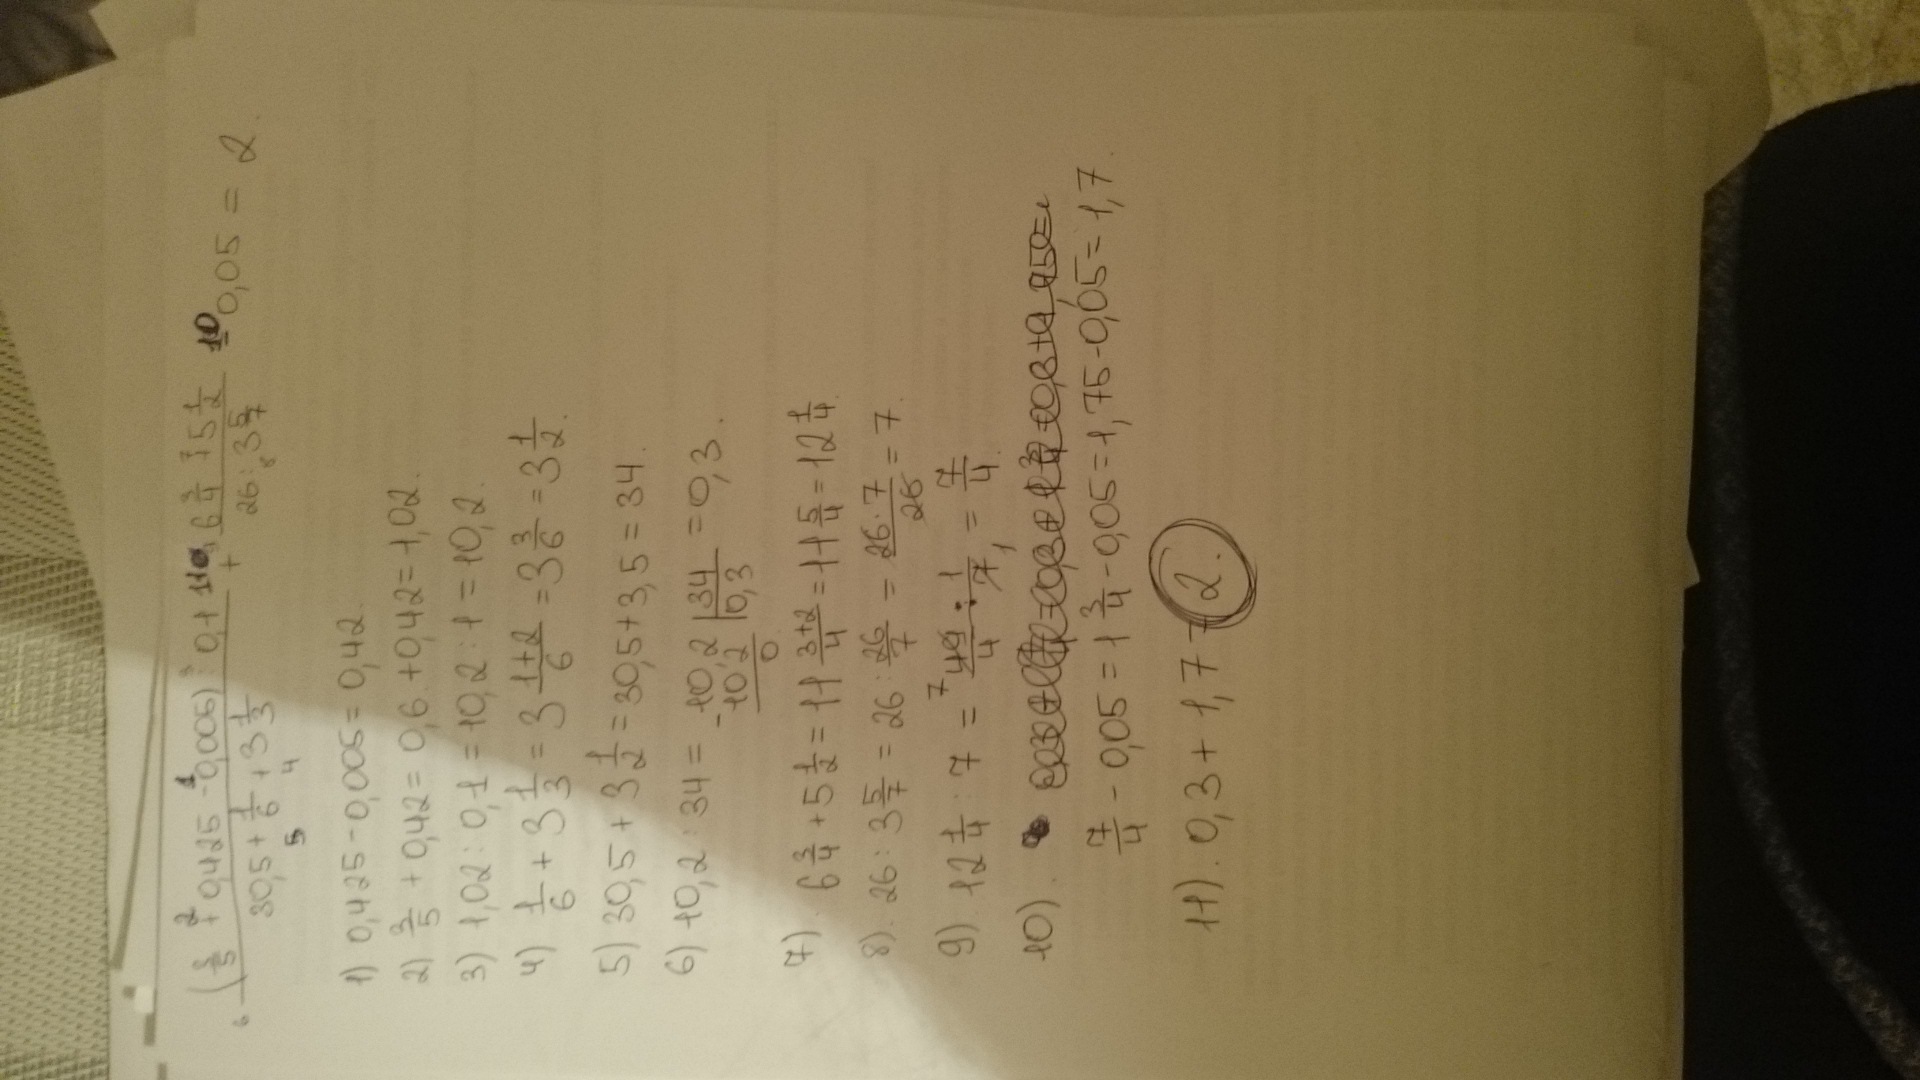 (3/5 + 0,425 - 0,005) : 0,1 / 30,5 + 1/6 + 3 1/3 + 6 3/4 + 5 1/2 / 26 : 3 5/7 - 0,05 = 2.
1) 0,425 - 0,005 = 0,42.
2) 3/5 + 0,42 = 0,6 + 0,42 = 1,02.
3) 1,02 : 0,1 = 10,2 : 1 = 10,2.
4) 1/6 + 3 1/3 = 3 1+2/6 = 3 3/6 = 3 1/2.
5) 30,5 + 3 1/2 = 30,5 + 3,5 = 34.
6) 10,2 : 34 = - 10,2 | 34 = 0,3.
10 2 | 0,3
0
7). 6 3/4 + 5 1/2 = 11 3+2/4 = 11 5/4 = 12 1/4.
8). 26 : 3 5/7 = 26 : 26/7 = 26·7/26 = 7.
9) 12 1/4 : 7 = 49/4 : 1/7 = 7/4.
10).
7/4 - 0,05 = 1 3/4 - 0,05 = 1,75 - 0,05 = 1,7.
11). 0,3 + 1,7 = 2.